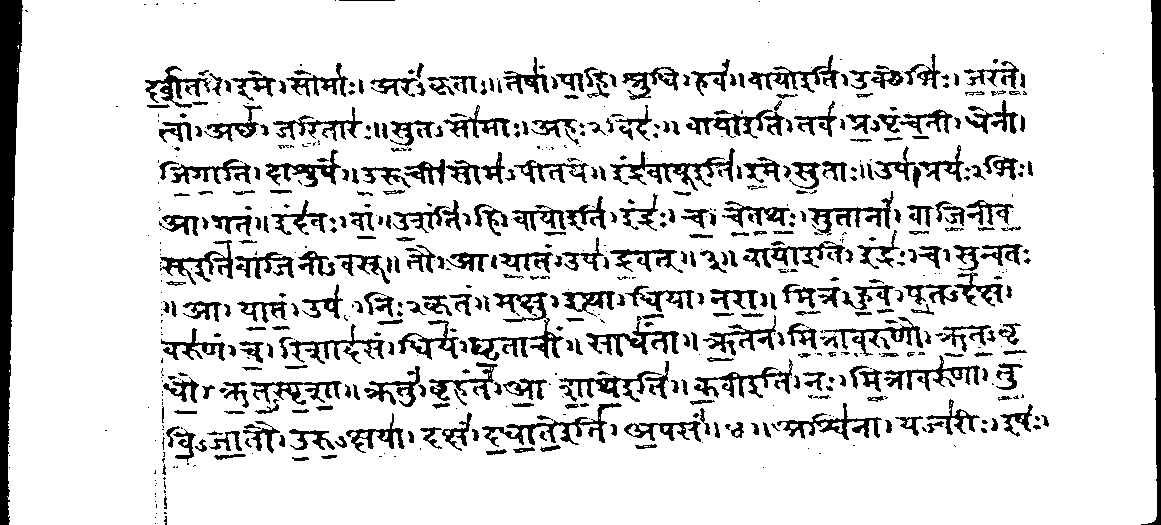 द॒र्श॒त॒। इ॒मे। सोमाः॑। अरं॑ऽकृताः॥ तेषां॑। पा॒हि॒। श्रु॒धि। हवं॑॥ वायो॒इति॑। उ॒क्थेभिः॑। ज॒रं॒ते॒।
त्वां। अच्छ॑। ज॒रि॒तारः॑॥ सु॒तऽसो॑माः। अ॒हः॒ऽविदः॑॥ वायो॒इति॑। तव॑। प्र॒ऽपृं॒च॒ती। धेना॑।
जि॒गा॒ति॒। दा॒शुषे॑॥ उ॒रू॒ची। सोम॑ऽपीतये॥ इंद्र॑वायू॒इति॑। इ॒मे। सु॒ताः॥ उप॑। प्रयः॑ऽभिः।
आ। ग॒तं॒॥ इंद॑वः। वां॒॥ उ॒शंति॑। हि॥ वायो॒इति॑। इंद्रः॑। च॒। चे॒त॒थः॒। सु॒तानां॑। वा॒जि॒नी॒व॒
सू॒इति॑वाजिनीऽवसू॥ तौ। आ। या॒तं॒। उप॑। द्र॒वत्॥३॥ वायो॒इति॑। इंद्रः॑। च॒। सु॒न्व॒तः
॥ आ। या॒तं॒। उप॑। निः॒ऽकृ॒तं॥ म॒क्षु। इ॒त्था। धि॒या। न॒रा॒॥ मि॒त्रं। हु॒वे॒। पू॒तऽद॑क्षं।
वरु॑णं। च॒। रि॒शाद॑सं। धियं॑। घृ॒ताचीं॑॥ साधं॑ता॥ ऋ॒तेन॑। मि॒त्रा॒व॒रु॒णौ॒। ऋ॒त॒ऽवृ॒
धौ॒। ऋ॒त॒ऽस्पृ॒शा॒॥ क्रतुं॑। बृ॒हंतं॑। आ॒ शा॒थे॒इति॑॥ क॒वीइति॑। नः॒। मि॒त्रावरु॑णा। तु॒
वि॒ऽजा॒तौ। उ॒रु॒ऽक्षया॑। दक्षं॑। द॒धा॒ते॒इति॑। अ॒पसं॑॥४॥ अश्वि॑ना। यज्व॑रीः। इषः॑।